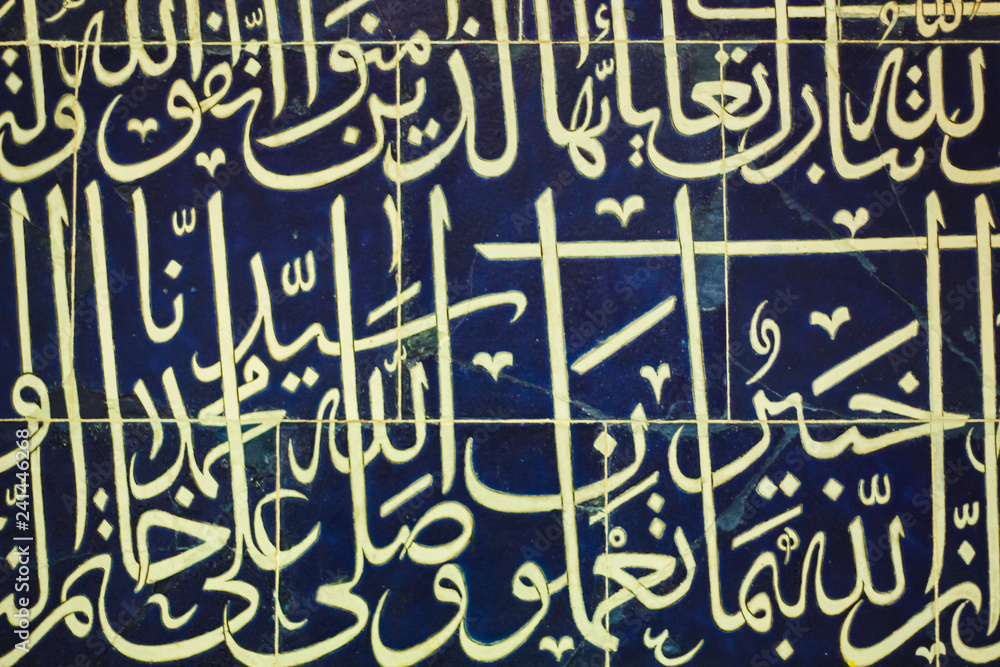 الله تبارك وتعالى يا أيها الذين آمنوا اتقوا الله
إن الله خبير بما تعملون وصلى الله على سيدنا محمد خاتم
Adobe Stock | #241446268